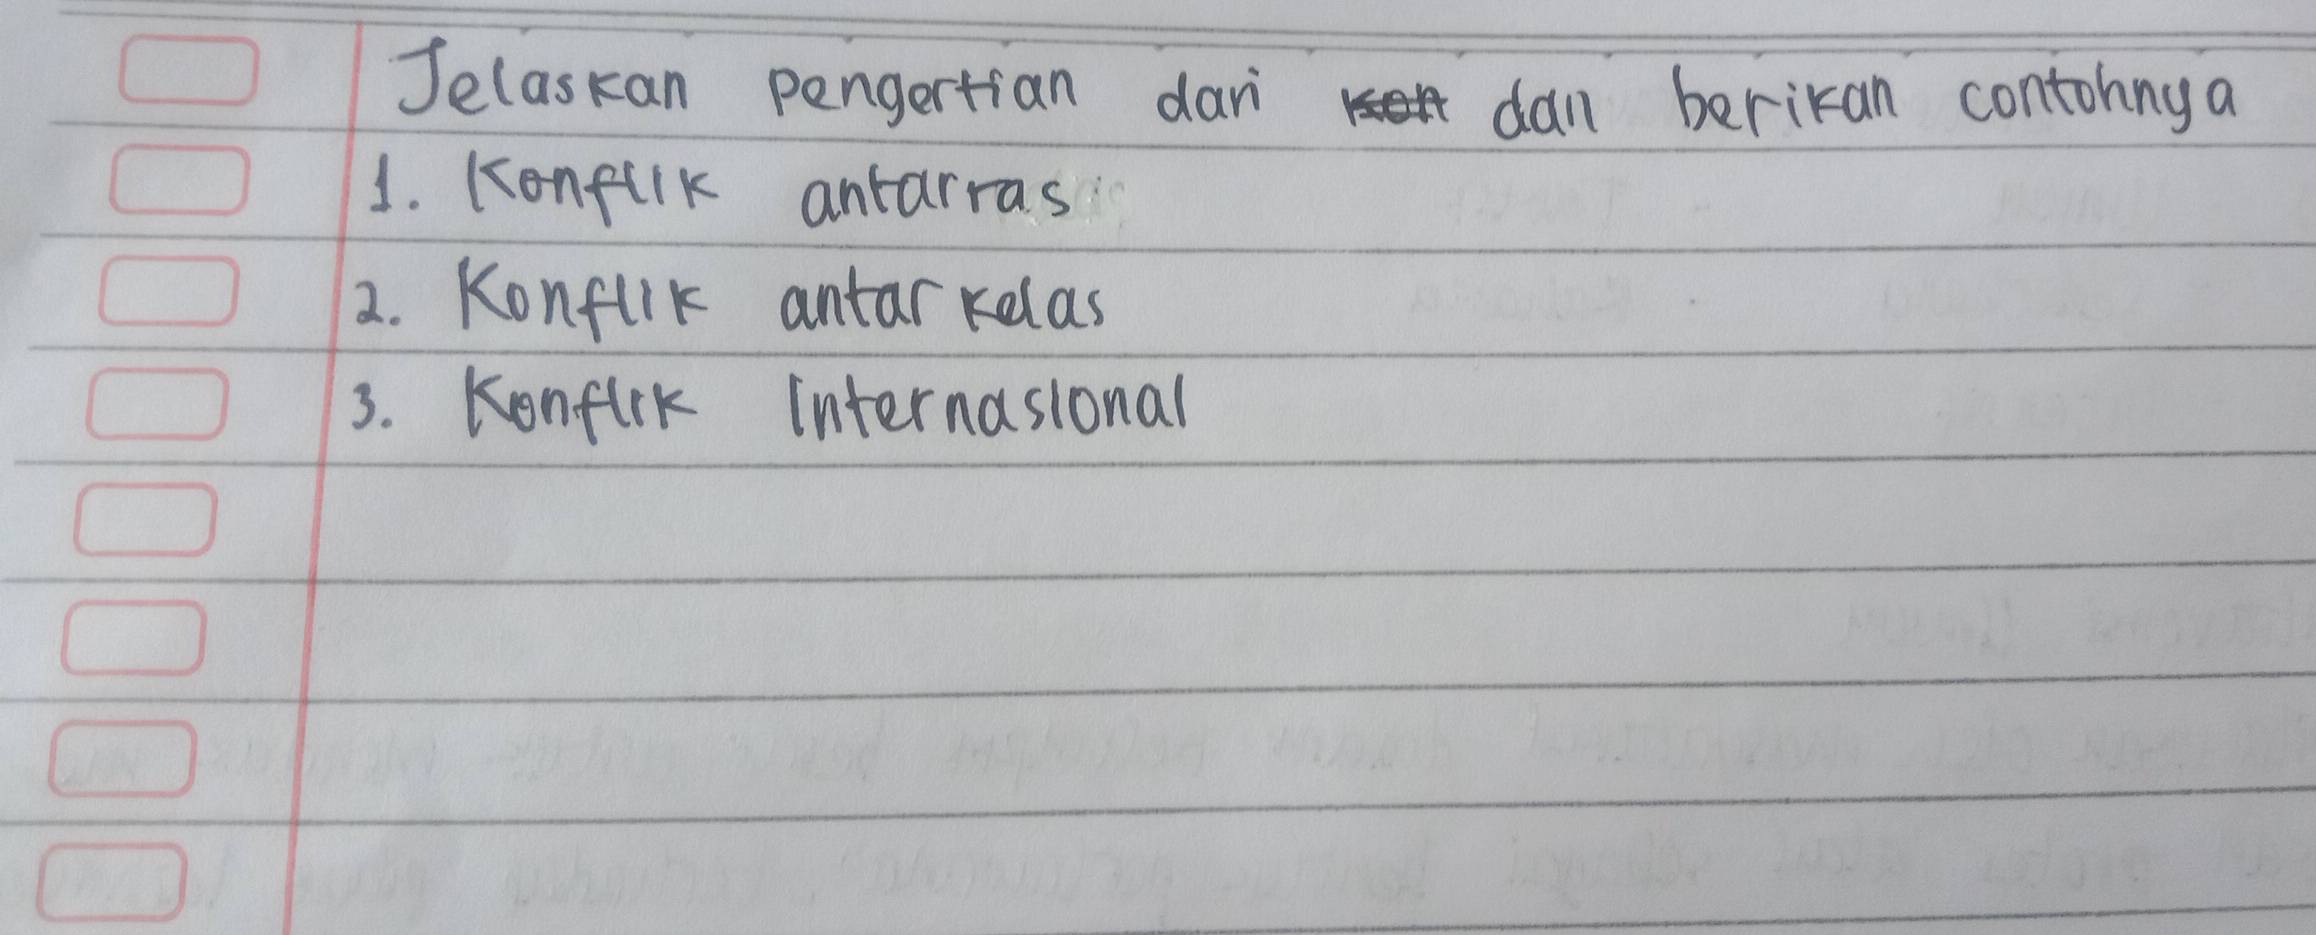 Jelaskan pengertian dari dan berikan contohnya
1. Konflik antarras
2. Konflik antar kelas
3. Konflik Internasional